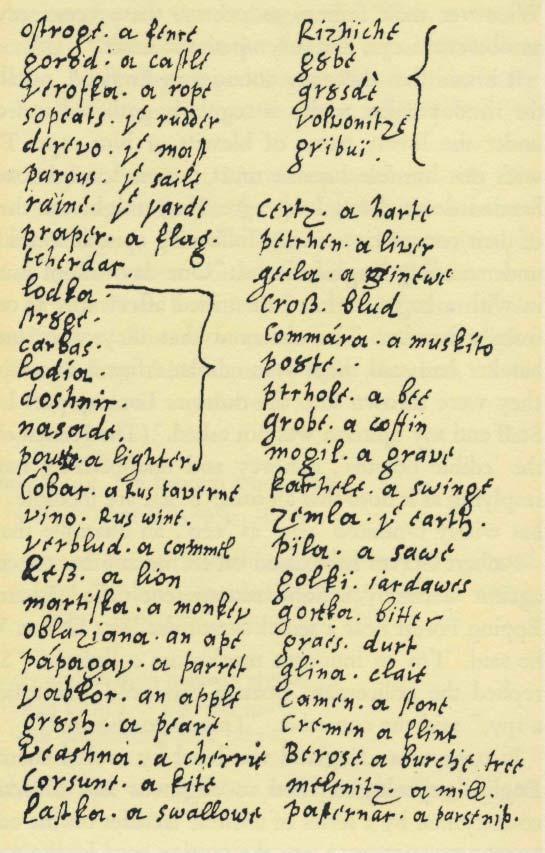 ostroge. a fence
gorod: a castle
verofka. a rope
sopeats. yͤ rudder
derevo. yͤ mast
parous. yͤ saile
raine. yͤ yarde
praper. a flag.
tcherdar.
lodka.
strȣge.
carbas.
lodia.
doshnic.
nasade.
a lighter
Cobac. a Rus taverne
vino. Rus wine.
verblud. a cammel
a lion
martiſka. a monkey
oblaziana. an ape
pápagay. a parret
yablor. an apple
grȣsh. a peare
Veashnai. a cherrie
Corsune. a kite
Laſtka. a swallowe
Rizhiche
gȣbè
grȣsdè
volvonitze
gribui.
Certz. a harte
petchen. a liver
geela. a
Croß. blud
Commára. a muskito
pogte.
ptchole. a bee
grobe. a coffin
mogil. a grave
kachele. a swinge
Zemla. yͤ earth.
pila. a sawe
golki. iardawes
gorka. bitter
graés. durt
glina. claie
Camen. a stone
Cremen a flint
Berose. a burche tree
melenitz. a mill.
pasternac. a parsenip.